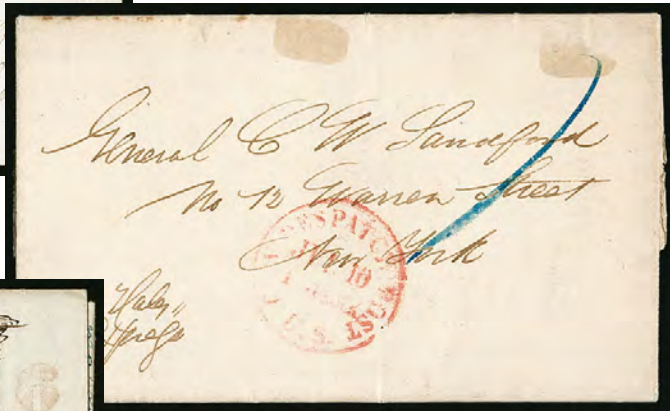 General C W Sandford
No 12 Warren Street
New York
DESPATCH POST
U.S.